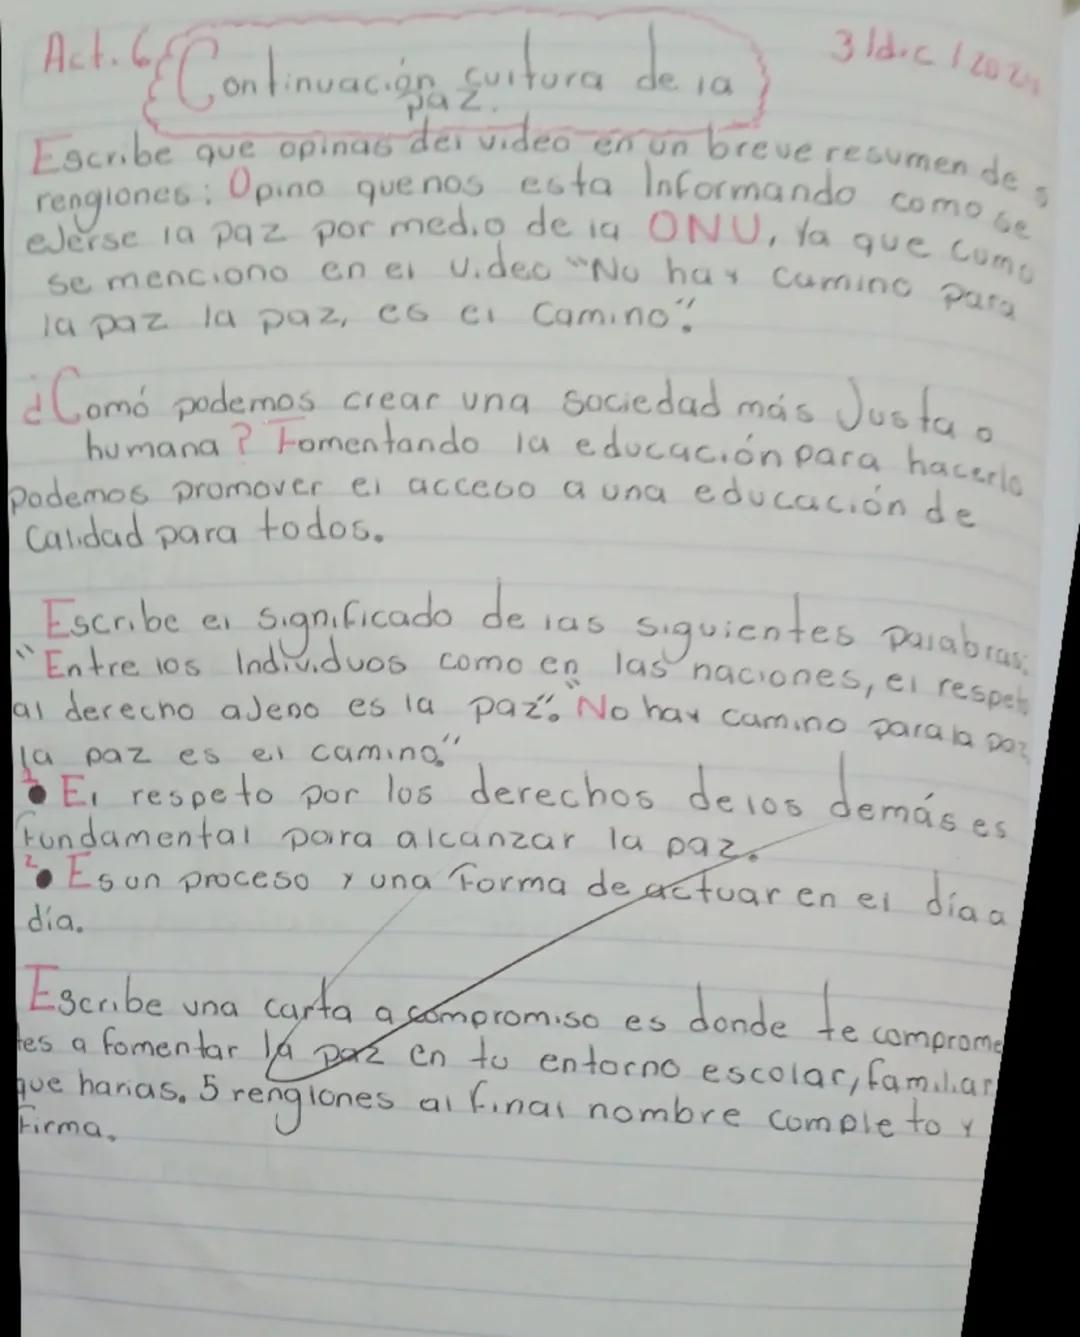 Act. 6 Continuación cultura de la 3/dic/202
paz.
Escribe que opinas del video en un breve resumen de 5
rengiones: Opino que nos esta Informando como se
eJerse la paz por medio de la ONU, Ya que como
se menciono en el video "No hay camino para
la paz la paz, es el camino".
¿Comó podemos crear una sociedad más Justa o
humana? Fomentando la educación para hacerlo
podemos promover el acceso a una educación de
Calidad para todos.
Escribe el significado de las siguientes palabras:
"Entre los Individuos como en las naciones, el respeto
al derecho aJeno es la paz". "No hay camino para la paz
la paz es el camino."
1 El respeto por los derechos de los demás es
Fundamental para alcanzar la paz.
2 Es un proceso y una Forma de actuar en el día a
día.
Escribe una carta a compromiso es donde te comprome
tes a fomentar la paz en tu entorno escolar, familiar
que harias. 5 renglones al final nombre completo y
Firma.